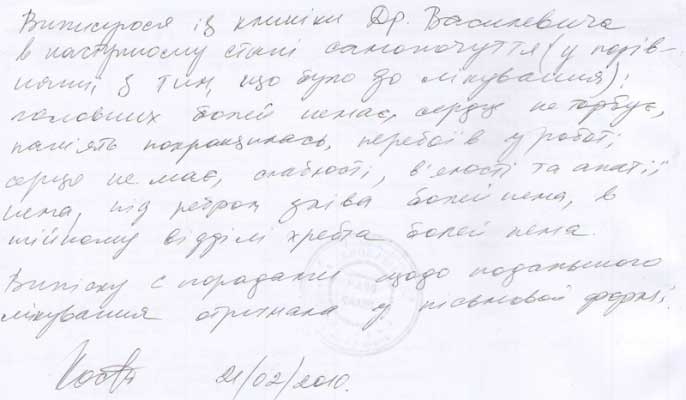 Виписуюся із клініки Др. Василевича
в наступному стані самопочуття (у порів-
нянні, з тим, що було до лікування):
головних болей немає, серце не торбує,
пам'ять покращилась, перебоїв у роботі
серце не має, слабості, в'ялості та апатії
нема, під ребром зліва болей нема, в
шийному відділі хребта болей нема.
Виписку с порадами щодо подальшого
лікування отримала у письмовой формі.
21/02/2010.